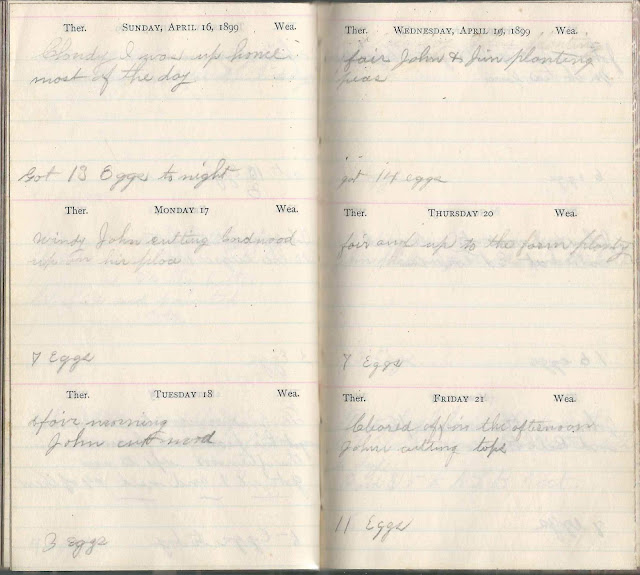 Ther. SUNDAY, APRIL 16, 1899 Wea.
Cloudy I was up home
most of the day
Got 13 Eggs to night
Ther. MONDAY 17 Wea.
Windy John cutting Cordwood
up on his place
7 Eggs
Ther. TUESDAY 18 Wea.
fair morning
John cut wood
3 eggs
Ther. WEDNESDAY, APRIL 19, 1899 Wea.
fair John & Jim planting
peas
got 14 eggs
Ther. THURSDAY 20 Wea.
fair and up to the farm
7 Eggs
Ther. FRIDAY 21 Wea.
Cleared off in the afternoon
John cutting tops
11 Eggs